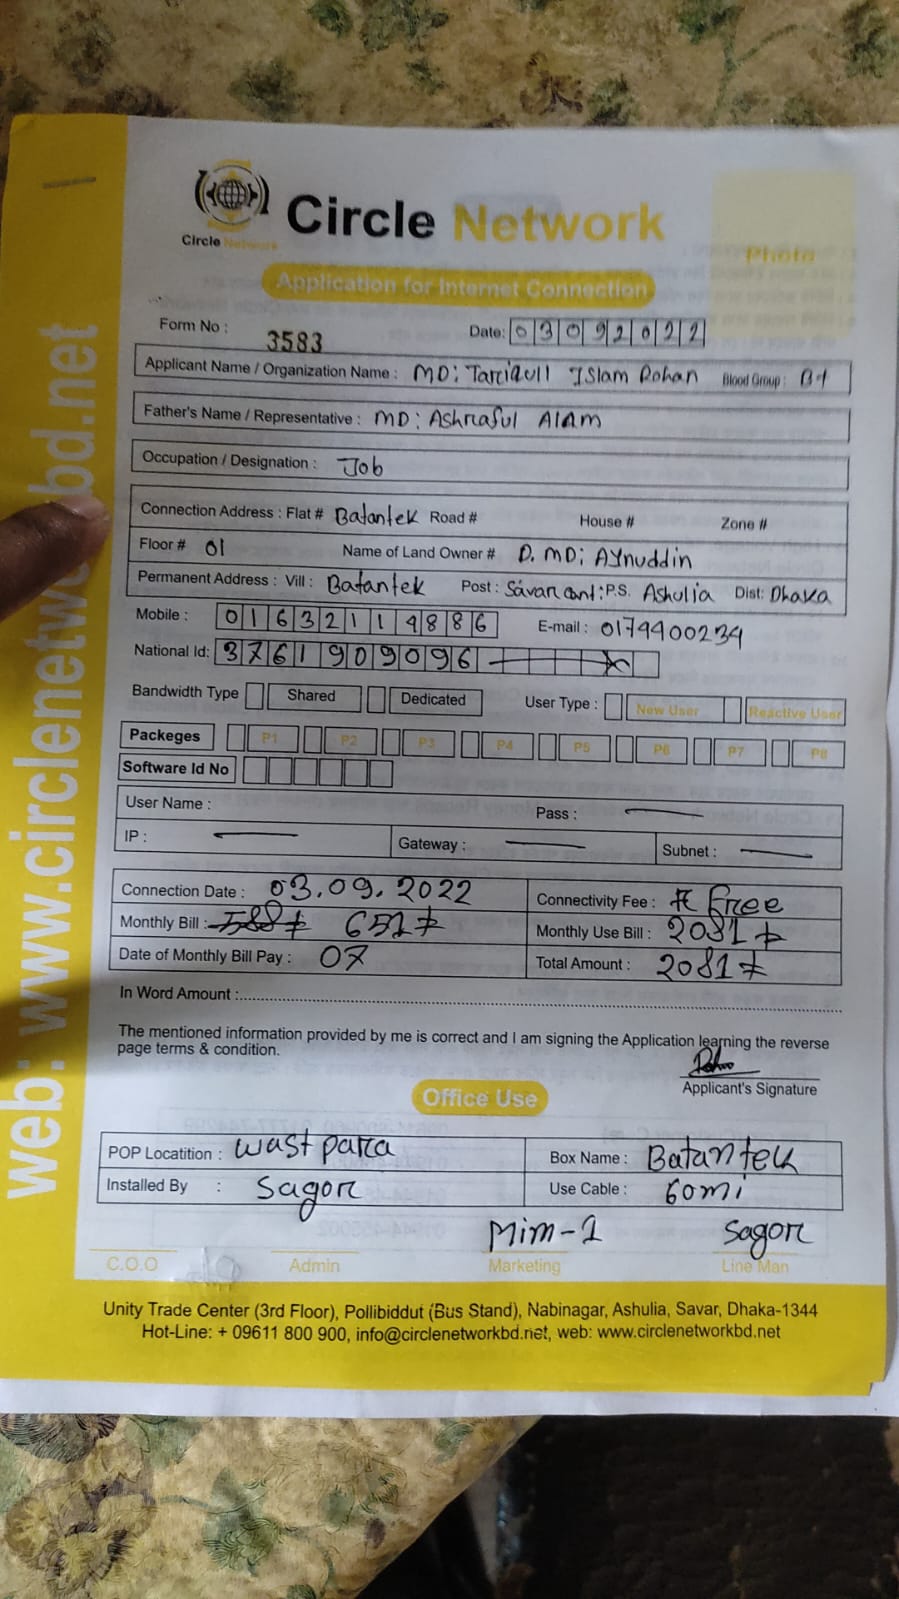 Circle Network
Circle Network
Photo
Application for Internet Connection
Form No : 3583
Date: 03092022
Applicant Name / Organization Name : MD: Tariqull Islam Rohan Blood Group : B+
Father's Name / Representative : MD: Ashraful Alam
Occupation / Designation : Job
Connection Address : Flat # Batantek Road # House # Zone #
Floor # 01 Name of Land Owner # D. MD: Aynuddin
Permanent Address : Vill : Batantek Post : Savar cant: P.S. Ashulia Dist: Dhaka
Mobile : 01632114886 E-mail : 0179400234
National Id: 3761909096
Bandwidth Type Shared Dedicated User Type : New User Reactive User
Packeges P1 P2 P3 P4 P5 P6 P7 P8
Software Id No
User Name : Pass :
IP : Gateway : Subnet :
Connection Date : 03.09.2022 Connectivity Fee : Free
Monthly Bill : 588 651 Monthly Use Bill : 2081
Date of Monthly Bill Pay : 07 Total Amount : 2081
In Word Amount :
The mentioned information provided by me is correct and I am signing the Application learning the reverse
page terms & condition.
Applicant's Signature
Office Use
POP Locatition : wast para Box Name : Batantek
Installed By : Sagor Use Cable : 60mi
Mim-1 Sagor
C.O.O Admin Marketing Line Man
Unity Trade Center (3rd Floor), Pollibiddut (Bus Stand), Nabinagar, Ashulia, Savar, Dhaka-1344
Hot-Line: + 09611 800 900, info@circlenetworkbd.net, web: www.circlenetworkbd.net
web: www.circlenetworkbd.net